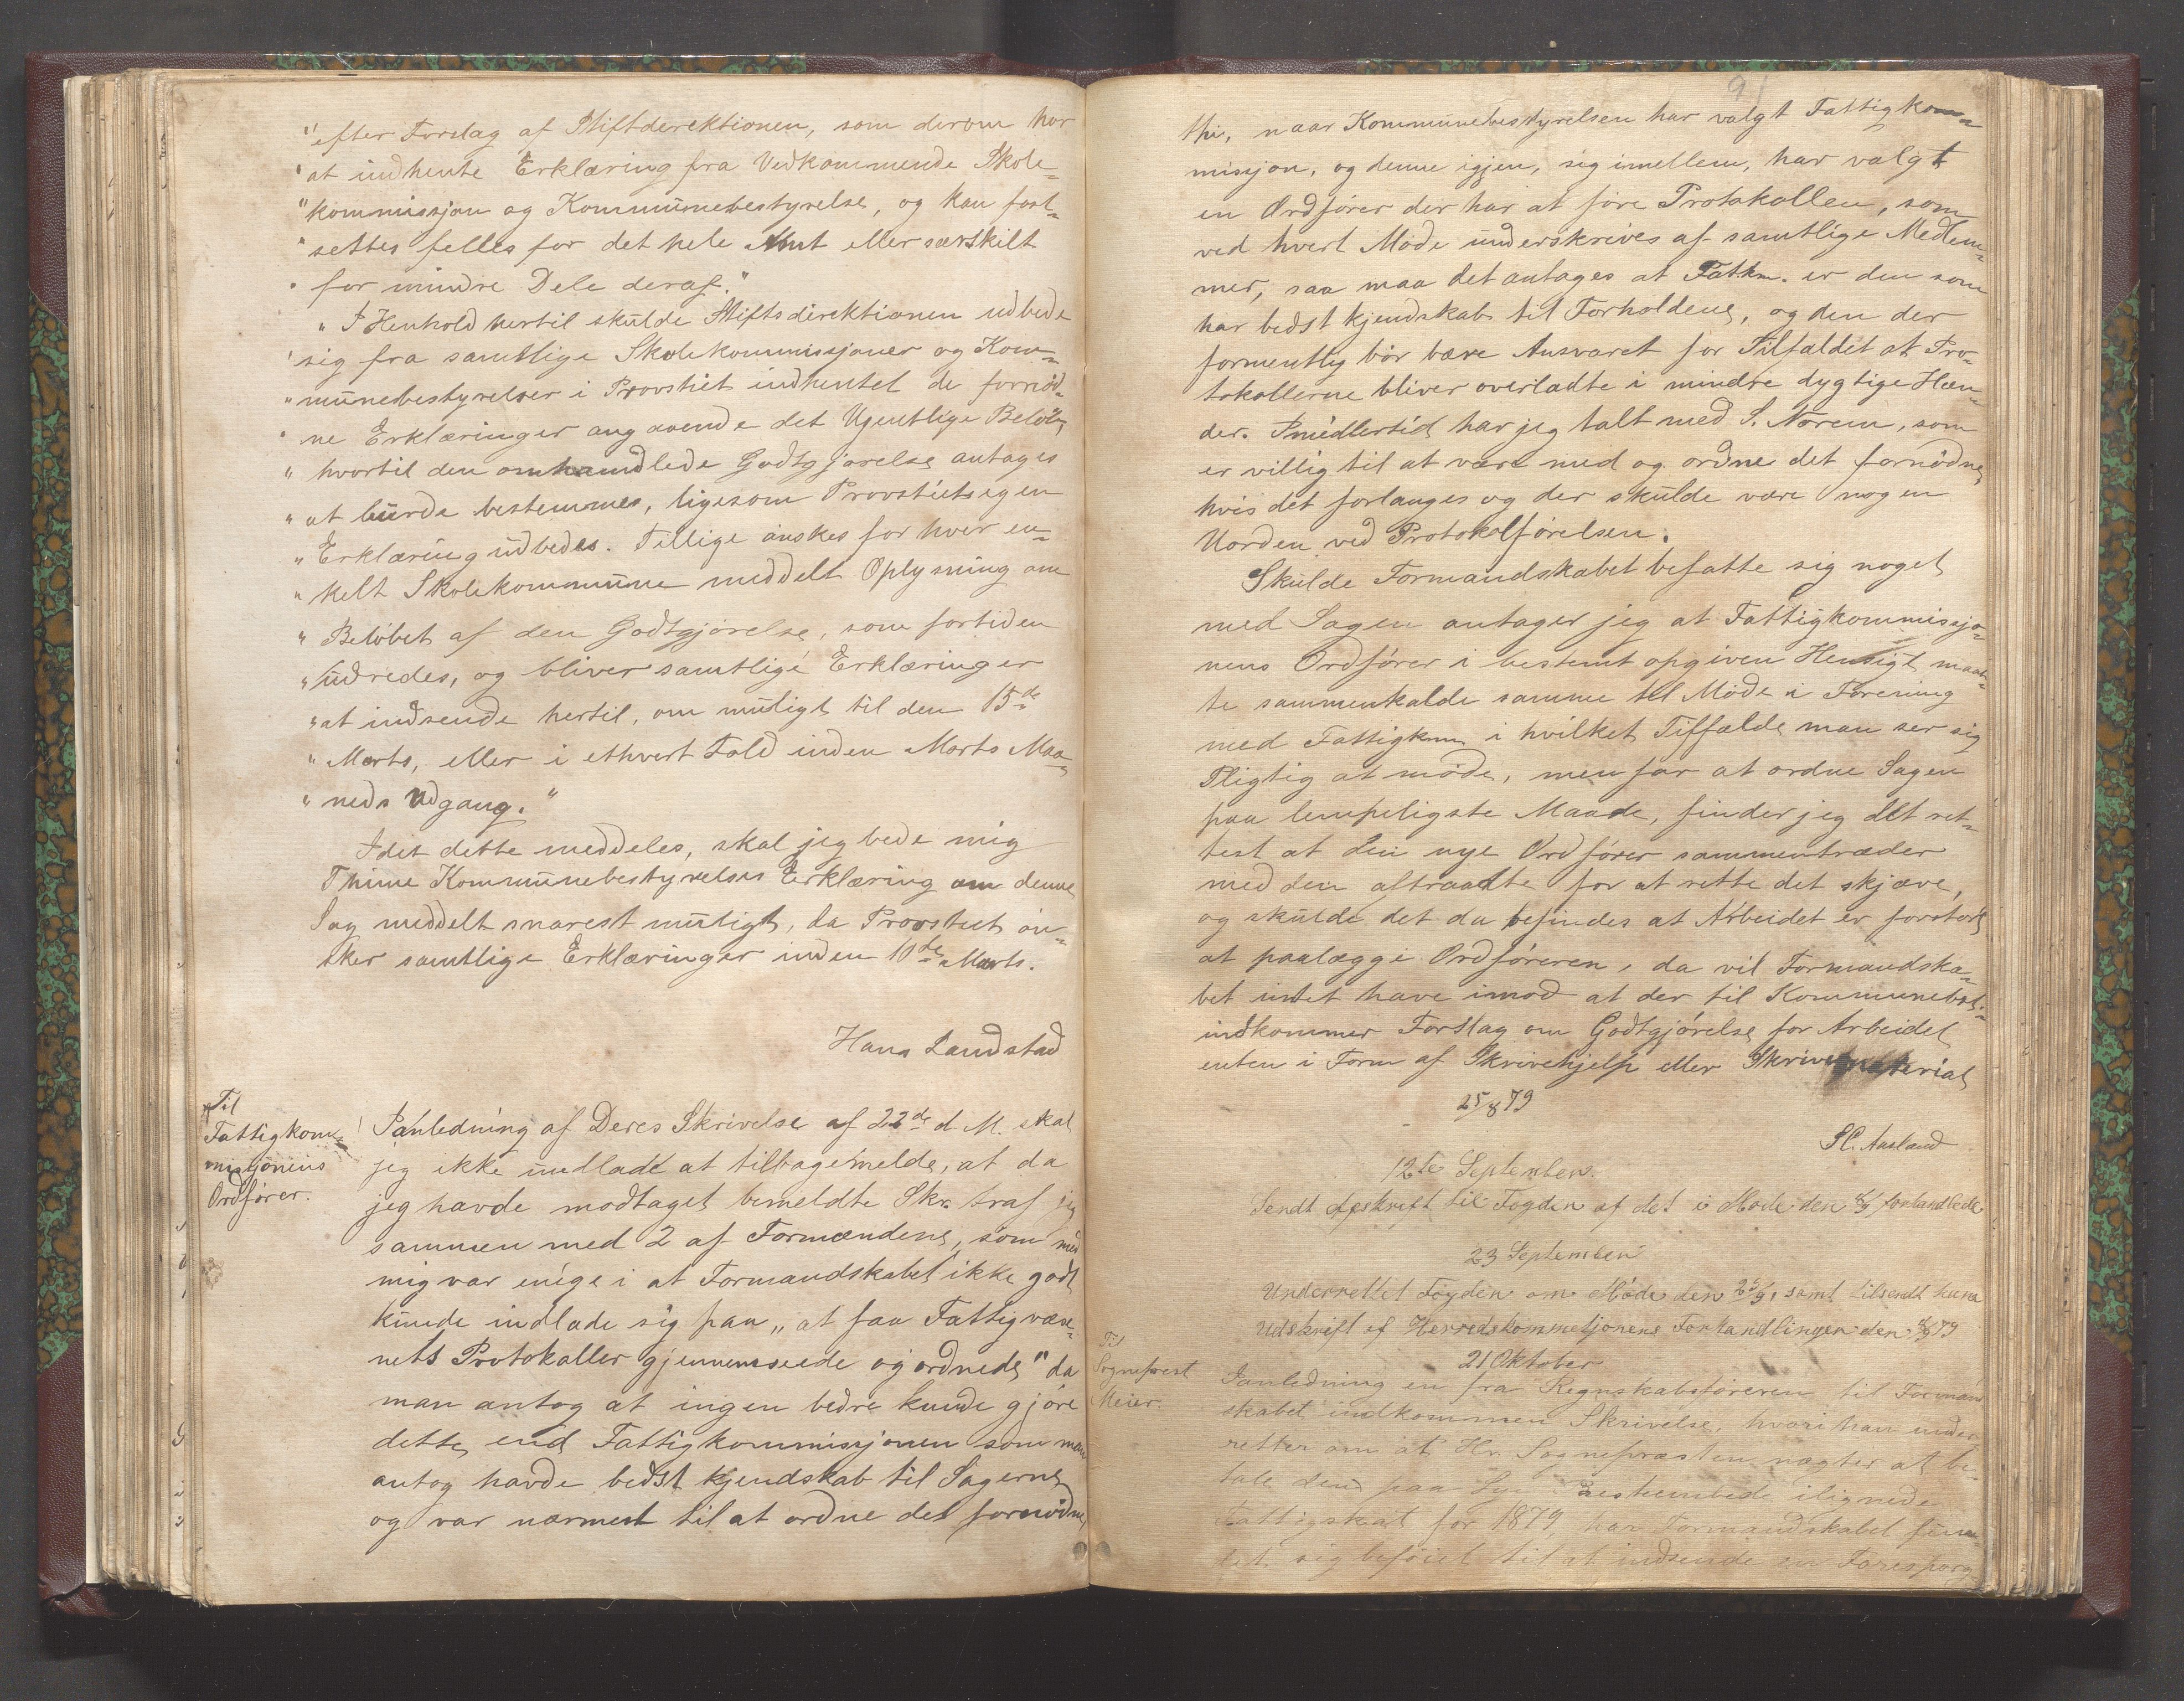 "efter Forslag af Stiftdirektionen, som derom har
"at indhente Erklæring fra Vedkommende Skole-
"kommissjon og Kommunebestyrelse, og kan fast-
"settes felles for det hele Amt eller særskilt
"for mindre Dele deraf."
"I Henhold hertil skulde Stiftsdirektionen udbede
"sig fra samtlige Skolekommissjoner og Kom-
"munebestyrelser i Provstiet indhentet de fornöd-
"ne Erklæringer angaaende det Ugentlige Belöb,
"hvortil den omhandlede Godtgjörelse antages
"at burde bestemmes, ligesom Provstiets egen
"Erklæring udbedes. Tillige önskes for hver en-
"kelt Skolekommune meddelt Oplysning om
"Belöbet af den Godtgjörelse, som fortiden
"udredes, og bliver samtlige Erklæringer
"at indsende hertil, om muligt til den 15de
"Marts, eller i ethvert Fald inden Marts Maa-
"neds Udgang."
Idet dette meddeles, skal jeg bede mig
Thime Kommunebestyrelses Erklæring om denne
Sag meddelt snarest muligt, da Provstiet ön-
sker samtlige Erklæringer inden 10de Marts.
Hans Landstad
Til
Fattigkom-
missjonens
Ordförer.
I anledning af Deres Skrivelse af 22de d. M. skal
jeg ikke undlade at tilbagemelde, at da
jeg havde modtaget bemeldte Skr. traf jeg
sammen med 2 af Formændene, som med
mig var enige i at Formandskabet ikke godt
kunde indlade sig paa "at faa Fattigvæse-
nets Protokoller gjennemseede og ordnede" da
man antog at ingen bedre kunde gjöre
dette, end Fattigkommissjonen som man
antog havde bedst kjendskab til Sagerne
og var nærmest til at ordne det fornödne,
91
thi, naar Kommunebestyrelsen har valgt Fattigkom-
missjon, og denne igjen, sig imellem, har valgt
en Ordförer der har at före Protokollen, som
ved hvert Möde underskrives af samtlige Medlem-
mer, saa maa det antages at Fatkm. er den som
har bedst kjendskab til Forholdene, og den der
formentlig bör bære Ansvaret for Tilfældet at Pro-
tokollerne bliver overladte i mindre dygtige Hæn-
der. Imidlertid har jeg talt med S. Norem, som
er villig til at være med og ordne det fornödne,
hvis det forlanges og der skulde være nogen
Uorden ved Protokolförelsen.
Skulde Formandskabet befatte sig noget
med Sagen antager jeg at Fattigkommissjo-
nens Ordförer i bestemt opgiven Hensigt maat-
te sammenkalde samme til Möde i Forening
med Fattigkm i hvilket Tilfælde man ser sig
Pligtig at möde, men for at ordne Sagen
paa lempeligste Maade, finder jeg det ret-
test at den nye Ordförer sammentræder
med den aftraadte for at rette det skjæve,
og skulde det da befindes at Arbeidet er forstort
at paalægge Ordföreren, da vil Formandska-
bet intet have imod at der til Kommunebest-
indkommer Forslag om Godtgjörelse for Arbeidet
enten i Form af Skrivehjelp eller Skrivematerial
25/8 79
S. C. Aasland
12te September
Sendt Afskrift til Fogden af det i Möde den forhandlede
23 September
Underrettet Fogden om Möde den 25/9, samt tilsendt ham
Udskrift af Herredskommetjonens Forhandlinger den 79
21 Oktober
Til
Sogneprest
Meier.
I anledning en fra Regnskabsföreren til Formand
skabet indkommen Skrivelse, hvori han under-
retter om at Hr. Sognepræsten nægter at be-
tale den paa Lye Prestembede ilignede
Fattigskat for 1879, har Formandskabet fun-
det sig beföiet til at indsende en Foresporg